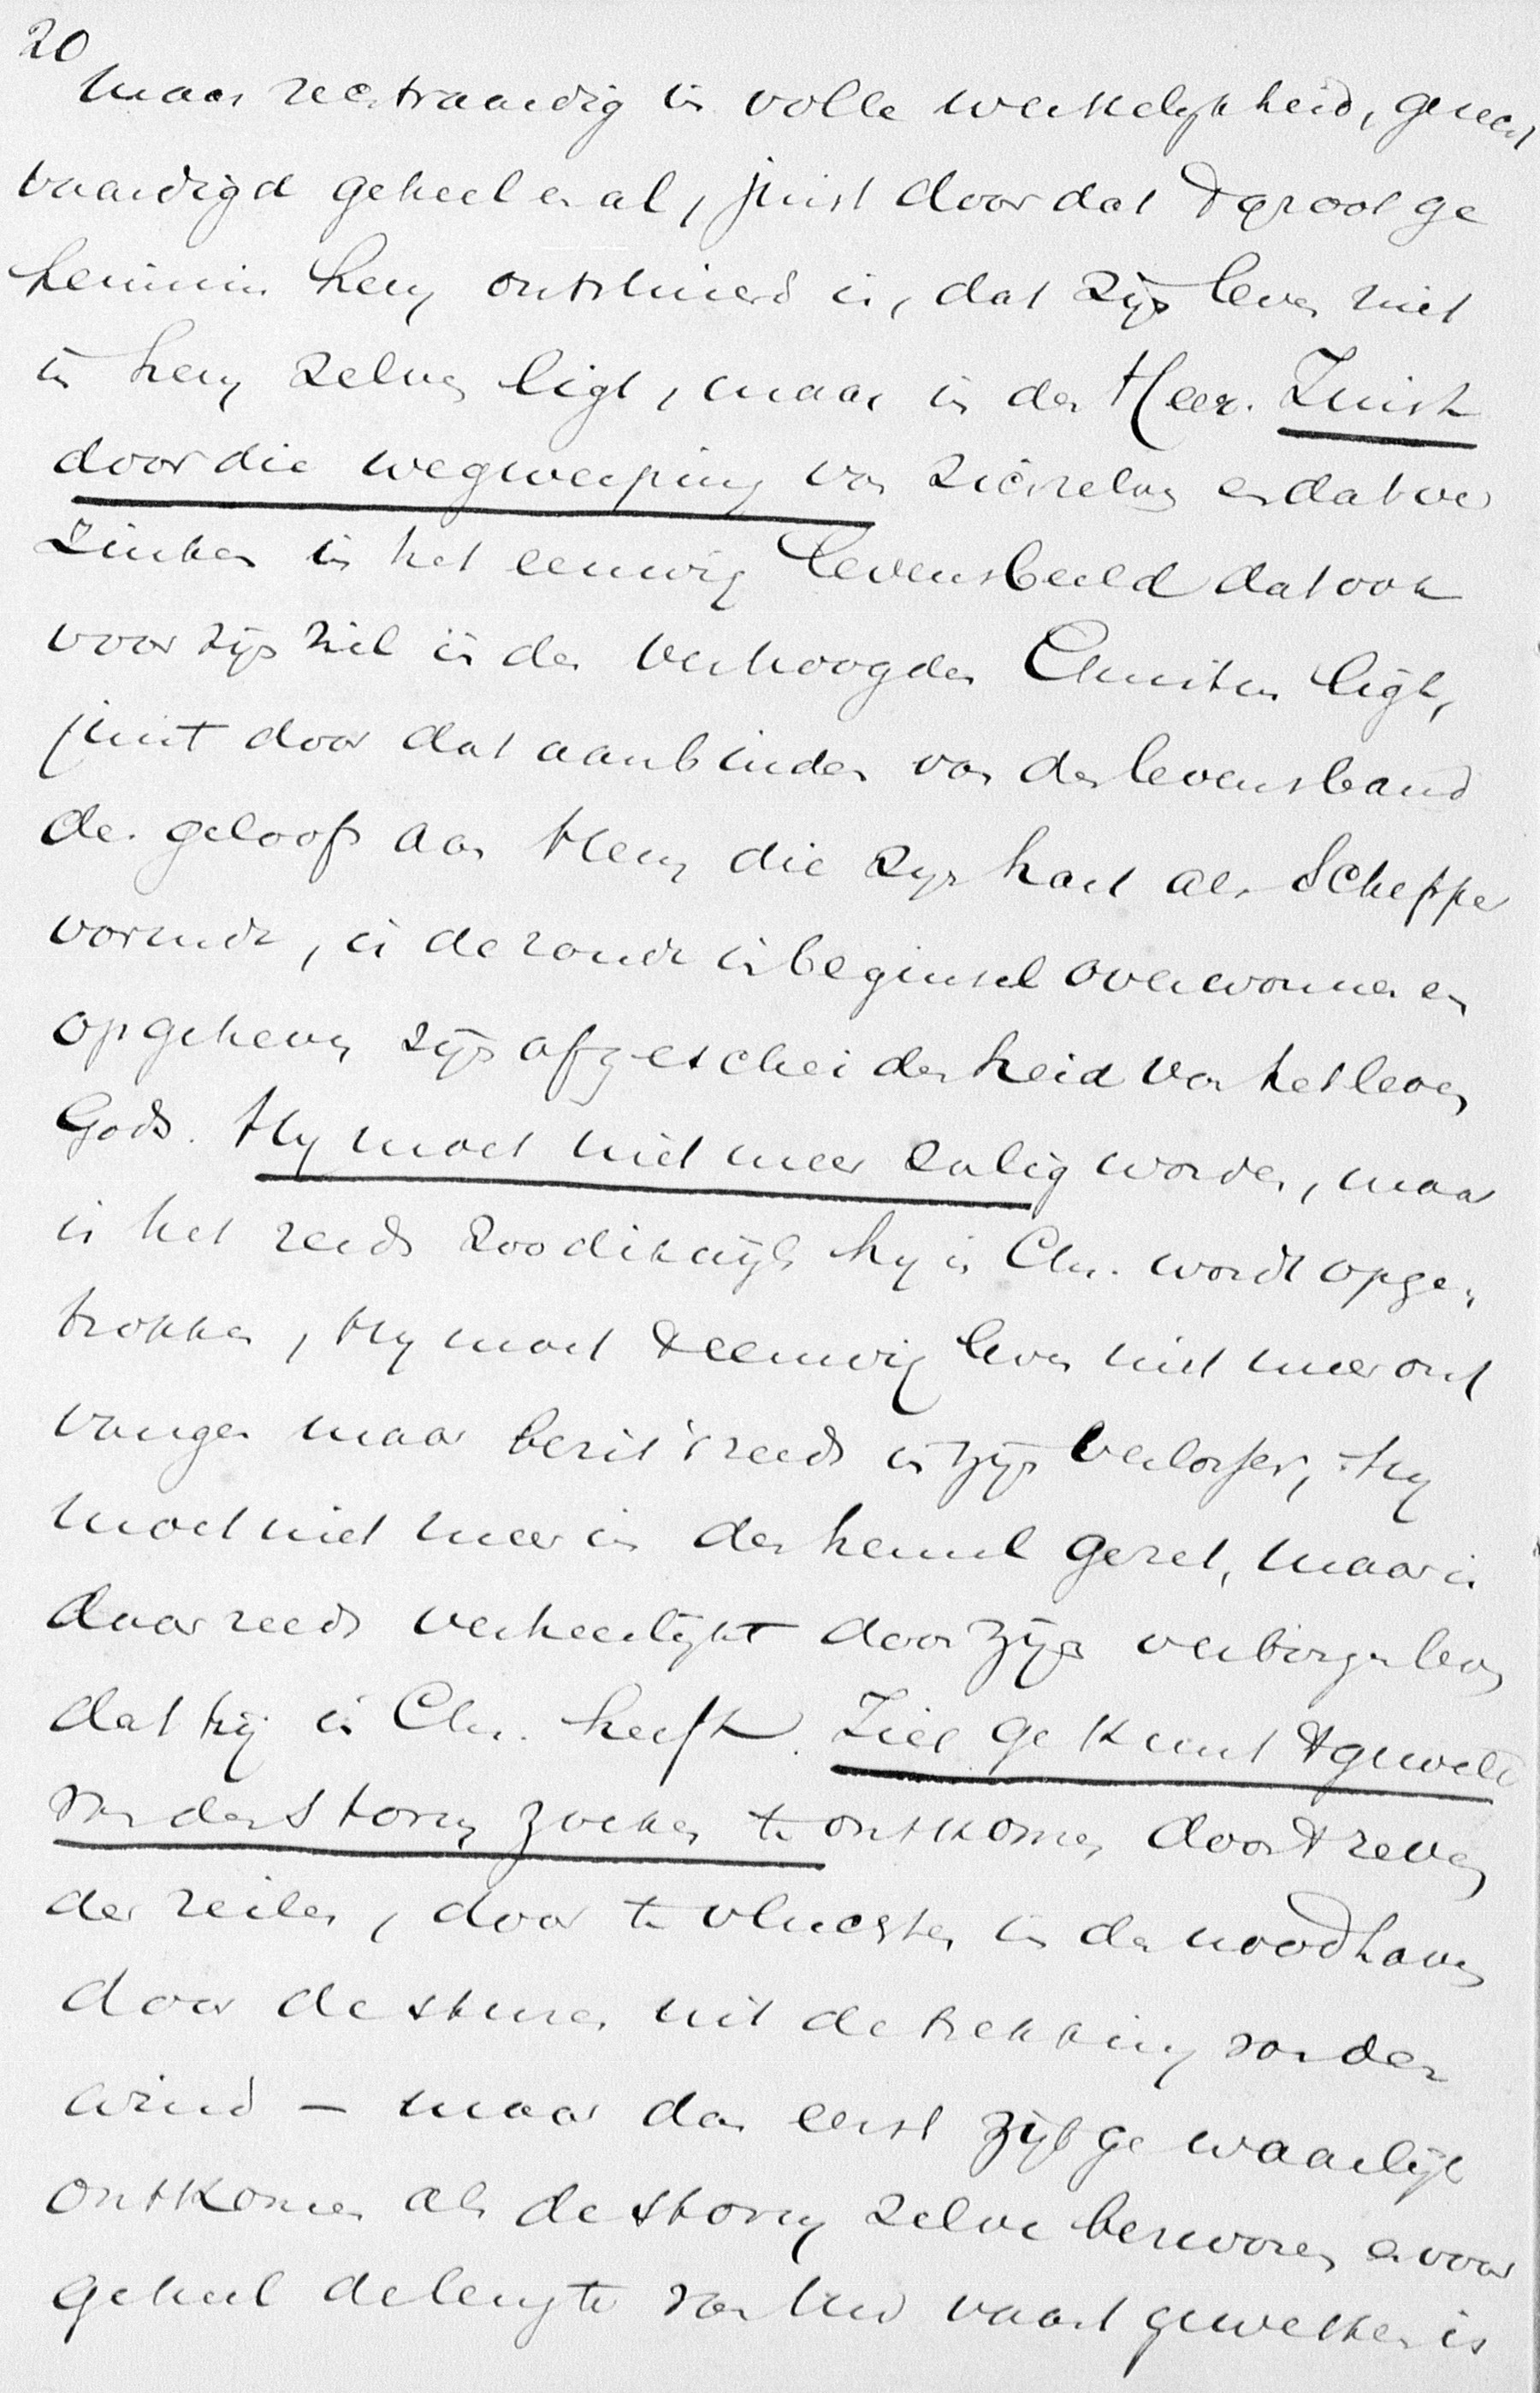 20
maar rechtvaardig in volle werkelijkheid, gerecht
vaardigd geheel en al, juist doordat 't groot ge
heimnis hem ontsluierd is, dat zijn leven niet
in hem zelven ligt, maar in den Heer. Juist
door die wegwerping van zichzelven en dat ver
zinken in het eeuwig levensbeeld dat ook
voor zijn ziel in den verhoogden Christus ligt,
juist door dat aanbinden van den levensband
des geloofs aan Hem die zijn hart als Schepper
vormde, is de zonde in beginsel overwonnen en
opgeheven zijn afgescheidenheid van het leven
Gods. Hy moet niet meer zalig worden, maar
is het reeds zoodikwijls hy in Chr. wordt opge„
trokken, Hy moet 't eeuwig leven niet meer ont
vangen maar bezit 't reeds in zijn Verlosser, Hy
moet niet meer in den hemel gezet, maar is
daar reeds verheerlijkt door zijn verborgen leven
dat hij in Chr. heeft. Ziet ge kunt 't geweld
van den storm zoeken te ontkomen door 't reven
der zeilen, door te vluchten in de noodhaven
door de sturen uit de trekking van den
wind – maar dan eerst zijt ge waarlijk
ontkomen als de storm zelve bezworen en voor
geheel de lengte van uw vaart geweken is